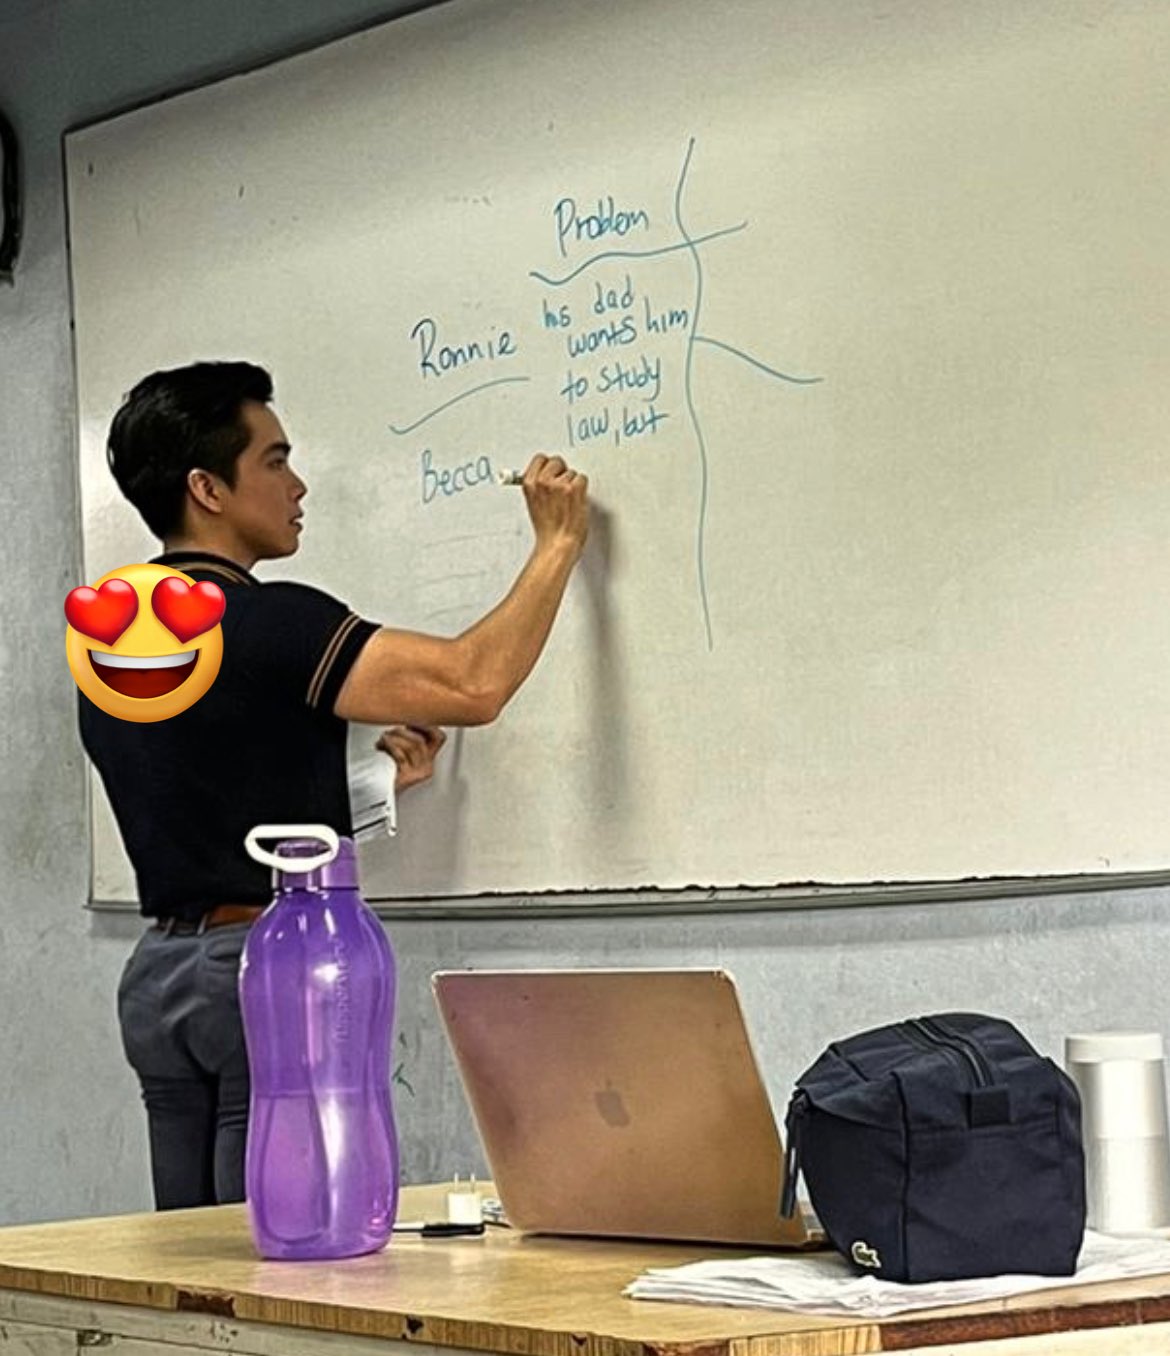 Problem
Ronnie
his dad
wants him
to study
law, but
Becca